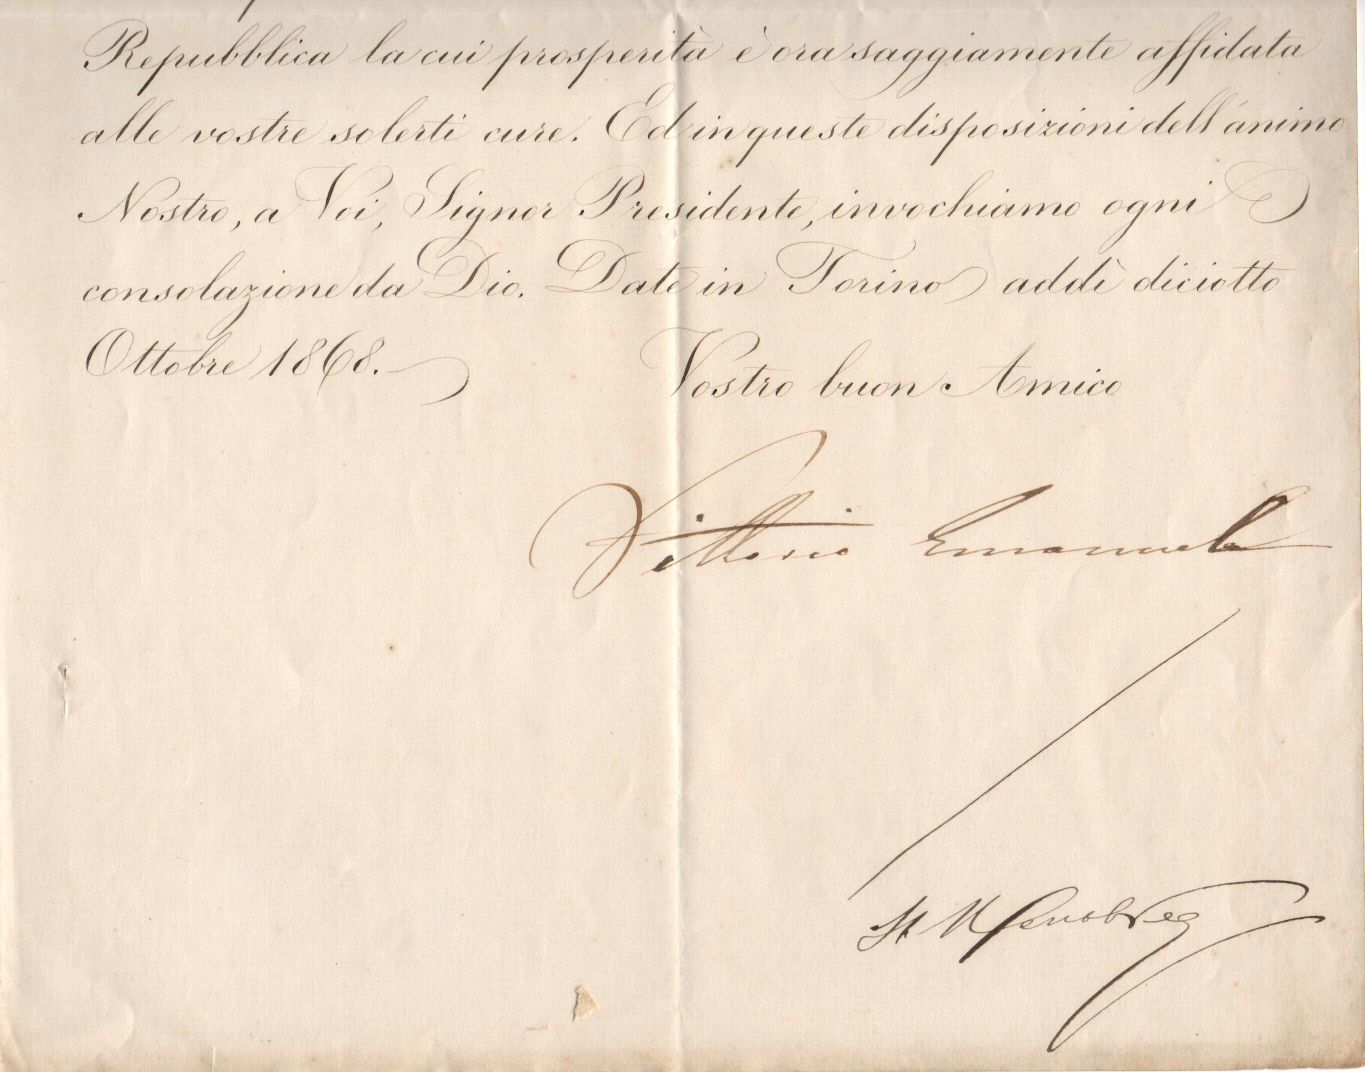 Repubblica la cui prosperità è ora saggiamente affidata
alle vostre solerti cure. Ed in queste disposizioni dell'animo
Nostro, a Voi, Signor Presidente, invochiamo ogni
consolazione da Dio. Date in Torino addì diciotto
Ottobre 1868.
Vostro buon Amico
Vittorio Emanuele